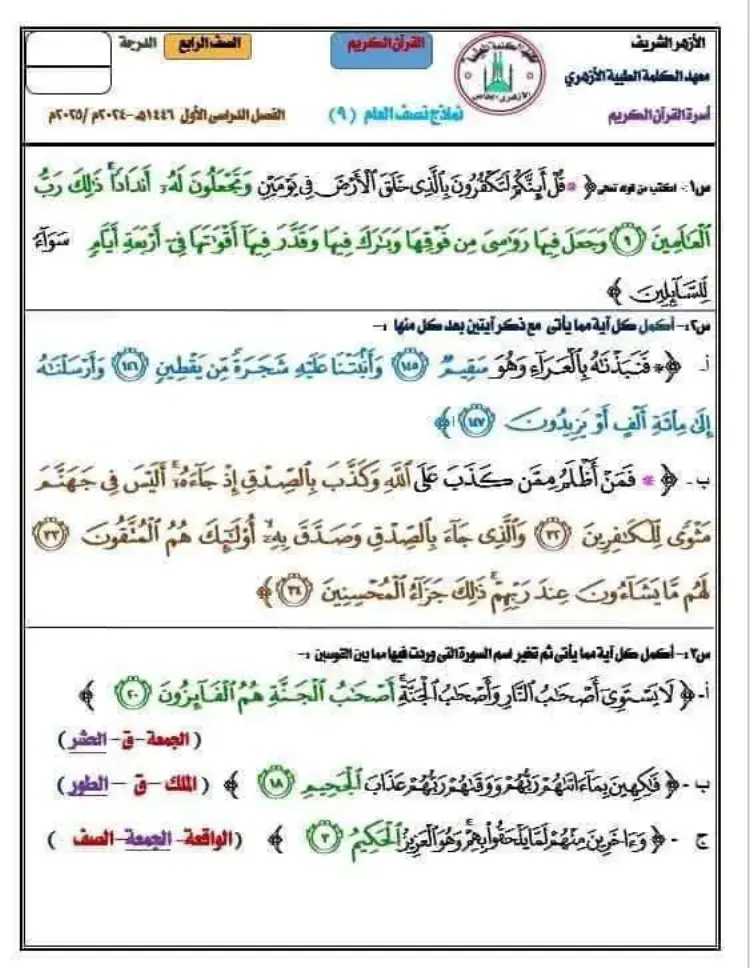 الأزهر الشريف
القرآن الكريم
الصف الرابع
الدرجة
معهد الكلمة الطيبة الأزهري
أسرة القرآن الكريم
نماذج نصف العام (٩)
الفصل الدراسي الأول ١٤٤٦هـ-٢٠٢٤م/٢٠٢٥م
س١:- اكتب من قوله تعالى ﴿ * قُلْ أَئِنَّكُمْ لَتَكْفُرُونَ بِالَّذِي خَلَقَ الْأَرْضَ فِي يَوْمَيْنِ وَتَجْعَلُونَ لَهُۥ أَندَادًاۚ ذَٰلِكَ رَبُّ
الْعَالَمِينَ (٩) وَجَعَلَ فِيهَا رَوَاسِيَ مِن فَوْقِهَا وَبَارَكَ فِيهَا وَقَدَّرَ فِيهَا أَقْوَاتَهَا فِي أَرْبَعَةِ أَيَّامٍ سَوَاءً
لِّلسَّائِلِينَ ﴾
س٢:- أكمل كل آية مما يأتى مع ذكر آيتين بعد كل منها :-
أ- ﴿ * فَنَبَذْنَاهُ بِالْعَرَاءِ وَهُوَ سَقِيمٌ (١٤٥) وَأَنبَتْنَا عَلَيْهِ شَجَرَةً مِّن يَقْطِينٍ (١٤٦) وَأَرْسَلْنَاهُ
إِلَىٰ مِائَةِ أَلْفٍ أَوْ يَزِيدُونَ (١٤٧) ﴾
ب- ﴿ * فَمَنْ أَظْلَمُ مِمَّن كَذَبَ عَلَى اللَّهِ وَكَذَّبَ بِالصِّدْقِ إِذْ جَاءَهُۥۚ أَلَيْسَ فِي جَهَنَّمَ
مَثْوًى لِّلْكَافِرِينَ (٣٢) وَالَّذِي جَاءَ بِالصِّدْقِ وَصَدَّقَ بِهِۦٓ أُولَٰئِكَ هُمُ الْمُتَّقُونَ (٣٣)
لَهُم مَّا يَشَاءُونَ عِندَ رَبِّهِمْۚ ذَٰلِكَ جَزَاءُ الْمُحْسِنِينَ (٣٤) ﴾
س٣:- أكمل كل آية مما يأتى ثم تخير اسم السورة التى وردت فيها مما بين القوسين :-
أ- ﴿ لَا يَسْتَوِي أَصْحَابُ النَّارِ وَأَصْحَابُ الْجَنَّةِۚ أَصْحَابُ الْجَنَّةِ هُمُ الْفَائِزُونَ (٢٠) ﴾
(الجمعة - ق - الحشر)
ب- ﴿ فَاكِهِينَ بِمَا آتَاهُمْ رَبُّهُمْ وَوَقَاهُمْ رَبُّهُمْ عَذَابَ الْجَحِيمِ (١٨) ﴾ (الملك - ق - الطور)
ج- ﴿ وَآخَرِينَ مِنْهُمْ لَمَّا يَلْحَقُوا بِهِمْۚ وَهُوَ الْعَزِيزُ الْحَكِيمُ (٣) ﴾ (الواقعة - الجمعة - الصف)